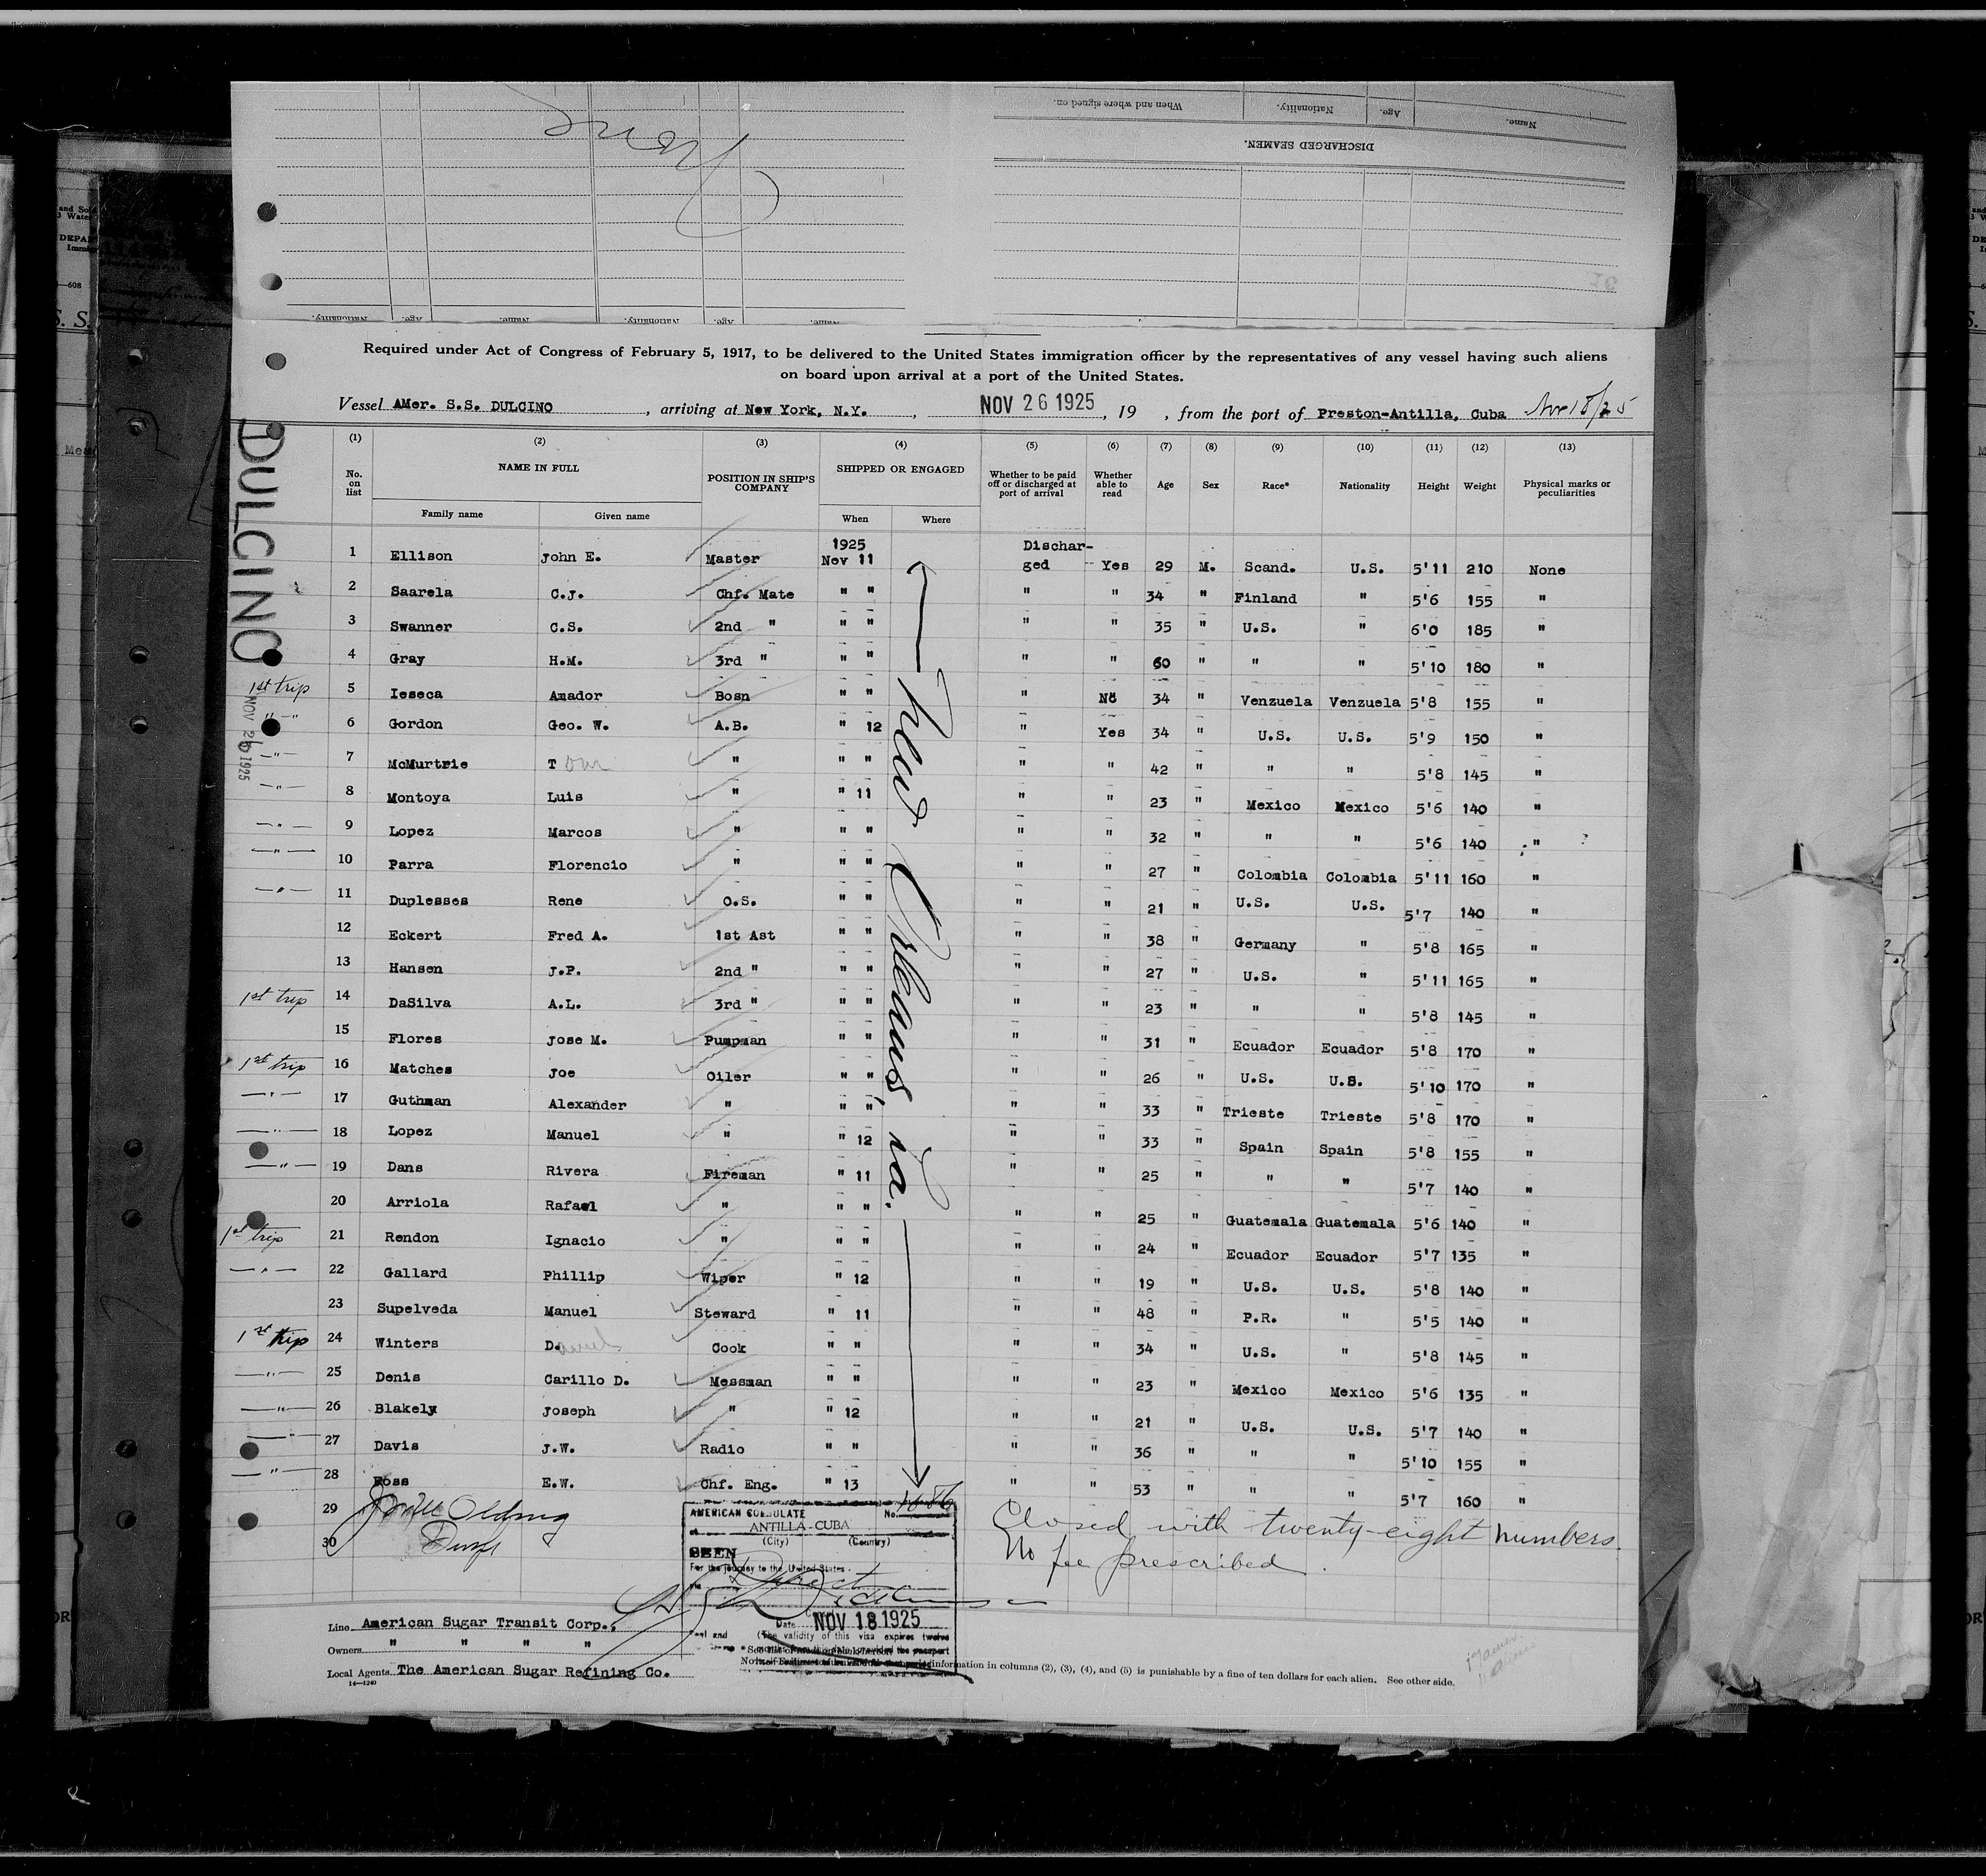 When and where signed on. Nationality. Age. Name.
DISCHARGED SEAMEN.
Nationality. Age. Name. Nationality. Age. Name.
Required under Act of Congress of February 5, 1917, to be delivered to the United States immigration officer by the representatives of any vessel having such aliens
on board upon arrival at a port of the United States.
Vessel AMer. S.S. DULCINO , arriving at New York, N.Y. , NOV 26 1925 , 19 , from the port of Preston-Antilla, Cuba Nov 18/25
DULCINO
NOV 26 1925
(1) (2) (3) (4) (5) (6) (7) (8) (9) (10) (11) (12) (13)
No. on list NAME IN FULL POSITION IN SHIP'S COMPANY SHIPPED OR ENGAGED Whether to be paid off or discharged at port of arrival Whether able to read Age Sex Race* Nationality Height Weight Physical marks or peculiarities
Family name Given name When Where
1925
1 Ellison John E. Master Nov 11 Dischar-ged Yes 29 M. Scand. U.S. 5'11 210 None
2 Saarela C.J. Chf. Mate " " " " 34 " Finland " 5'6 155 "
3 Swanner C.S. 2nd " " " " " 35 " U.S. " 6'0 185 "
4 Gray H.M. 3rd " " " " " 60 " " " 5'10 180 "
1st trip 5 Ieseca Amador Bosn " " " No 34 " Venzuela Venzuela 5'8 155 "
" 6 Gordon Geo. W. A.B. " 12 " Yes 34 " U.S. U.S. 5'9 150 "
" 7 McMurtrie Tom " " " " " 42 " " " 5'8 145 "
" 8 Montoya Luis " " 11 " " 23 " Mexico Mexico 5'6 140 "
" 9 Lopez Marcos " " " " " 32 " " " 5'6 140 " ?
" 10 Parra Florencio " " " " " 27 " Colombia Colombia 5'11 160 "
" 11 Duplesses Rene O.S. " " " " 21 " U.S. U.S. 5'7 140 "
12 Eckert Fred A. 1st Ast " " " " 38 " Germany " 5'8 165 "
13 Hansen J.P. 2nd " " " " " 27 " U.S. " 5'11 165 "
1st trip 14 DaSilva A.L. 3rd " " " " " 23 " " " 5'8 145 "
15 Flores Jose M. Pumpman " " " " 31 " Ecuador Ecuador 5'8 170 "
1st trip 16 Matches Joe Oiler " " " " 26 " U.S. U.S. 5'10 170 "
" 17 Guthman Alexander " " " " " 33 " Trieste Trieste 5'8 170 "
" 18 Lopez Manuel " " 12 " " 33 " Spain Spain 5'8 155 "
" 19 Dans Rivera Fireman " 11 " " 25 " " " 5'7 140 "
20 Arriola Rafael " " " " " 25 " Guatemala Guatemala 5'6 140 "
1st trip 21 Rendon Ignacio " " " " " 24 " Ecuador Ecuador 5'7 135 "
" 22 Gallard Phillip Wiper " 12 " " 19 " U.S. U.S. 5'8 140 "
23 Supelveda Manuel Steward " 11 " " 48 " P.R. " 5'5 140 "
1st trip 24 Winters D.aniel Cook " " " " 34 " U.S. " 5'8 145 "
" 25 Denis Carillo D. Messman " " " " 23 " Mexico Mexico 5'6 135 "
" 26 Blakely Joseph " " 12 " " 21 " U.S. U.S. 5'7 140 "
" 27 Davis J.W. Radio " " " " 36 " " " 5'10 155 "
" 28 Ross E.W. Chf. Eng. " 13 " " 53 " " " 5'7 160 "
New Orleans, La.
29
30
Closed with twenty-eight numbers.
No fee prescribed.
AMERICAN CONSULATE No. 1686
at ANTILLA-CUBA
(City) (Country)
SEEN
For the journey to the United States
via Direct
Date NOV 18 1925
(The validity of this visa expires twelve
Line American Sugar Transit Corp.,
Owners " " " "
Local Agents The American Sugar Refining Co.
14—1240
information in columns (2), (3), (4), and (5) is punishable by a fine of ten dollars for each alien. See other side.